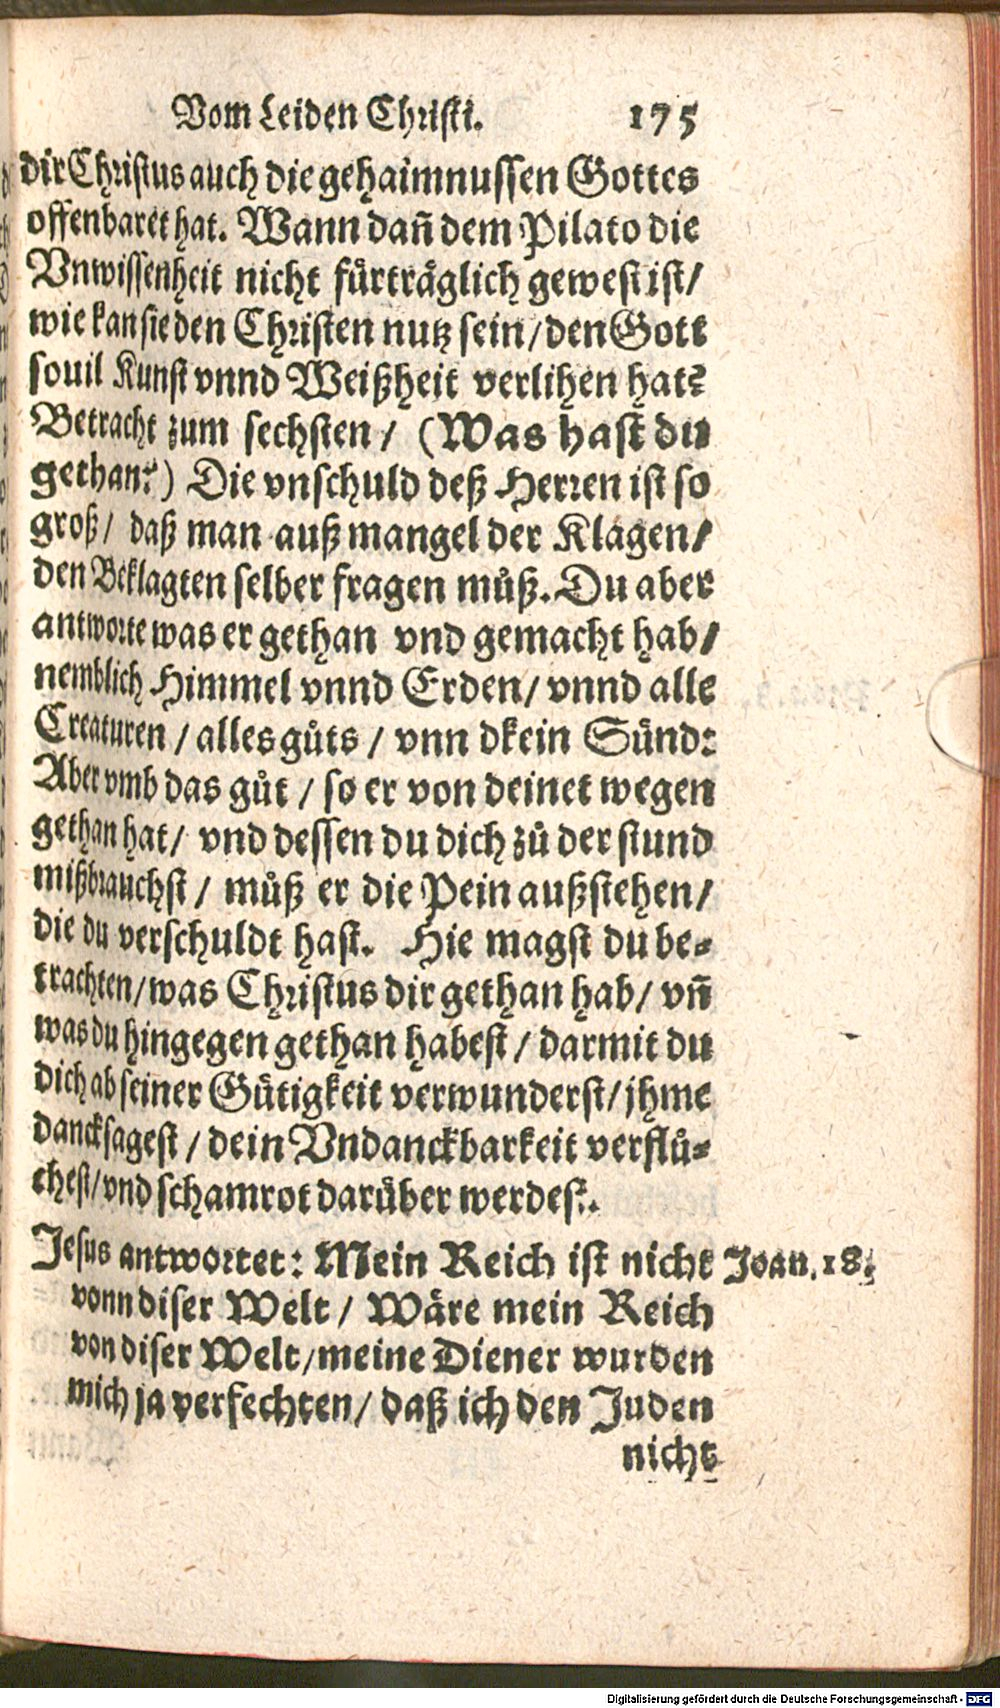 Vom Leiden Christi. 175
dir Christus auch die gehaimnussen Gottes
offenbaret hat. Wann dañ dem Pilato die
Vnwissenheit nicht fůrtråglich gewest ist/
wie kan sie den Christen nutz sein/ den Gott
souil Kunst vnnd Weißheit verlihen hat?
Betracht zum sechsten / (Was hast du
gethan?) Die vnschuld deß Herren ist so
groß/ daß man auß mangel der Klagen/
den Beklagten selber fragen můß. Du aber
antworte was er gethan vnd gemacht hab/
nemblich Himmel vnnd Erden/ vnnd alle
Creaturen / alles gůts / vnn dkein Sünd:
Aber vmb das gůt / so er von deinet wegen
gethan hat/ vnd dessen du dich zů der stund
mißbrauchst / můß er die Pein außstehen/
die du verschuldt hast. Hie magst du be-
trachten/ was Christus dir gethan hab/ vñ
was du hingegen gethan habest / darmit du
dich ab seiner Gůtigkeit verwunderst/ jhme
dancksagest / dein Vndanckbarkeit verflů-
chest/ vnd schamrot darůber werdest.
Jesus antwortet: Mein Reich ist nicht Joan. 18.
vonn diser Welt / Wåre mein Reich
von diser Welt/ meine Diener wurden
mich ja verfechten/ daß ich den Juden
nicht
Digitalisierung gefördert durch die Deutsche Forschungsgemeinschaft - DFG